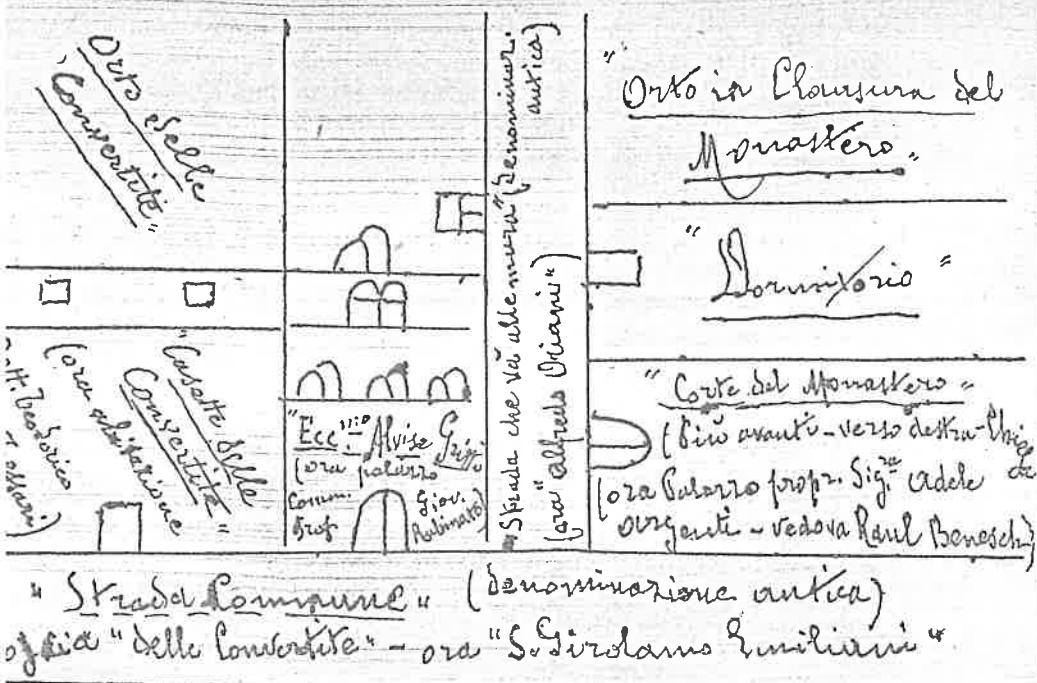 Orto delle
"Convertite"
"Casette delle
Convertite"
(ora abitazione
Dott. Teodorico
Tessari)
"Ecc.mo Alvise Gritti
(ora palazzo
Comm. Giov.
Prof. Rubinato)
"Strada che va alle mura" (denominaz. antica)
(ora "Alfredo Oriani")
"Orto in Clausura del
Monastero"
"Dormitorio"
"Corte del Monastero"
(Più avanti - verso destra - Chiesa
(ora Palazzo propr. Sig.ra Adele
Argenti - vedova Raul Beneschi)
"Strada Commune" (denominazione antica)
"delle Convertite" - ora "S. Girolamo Emiliani"